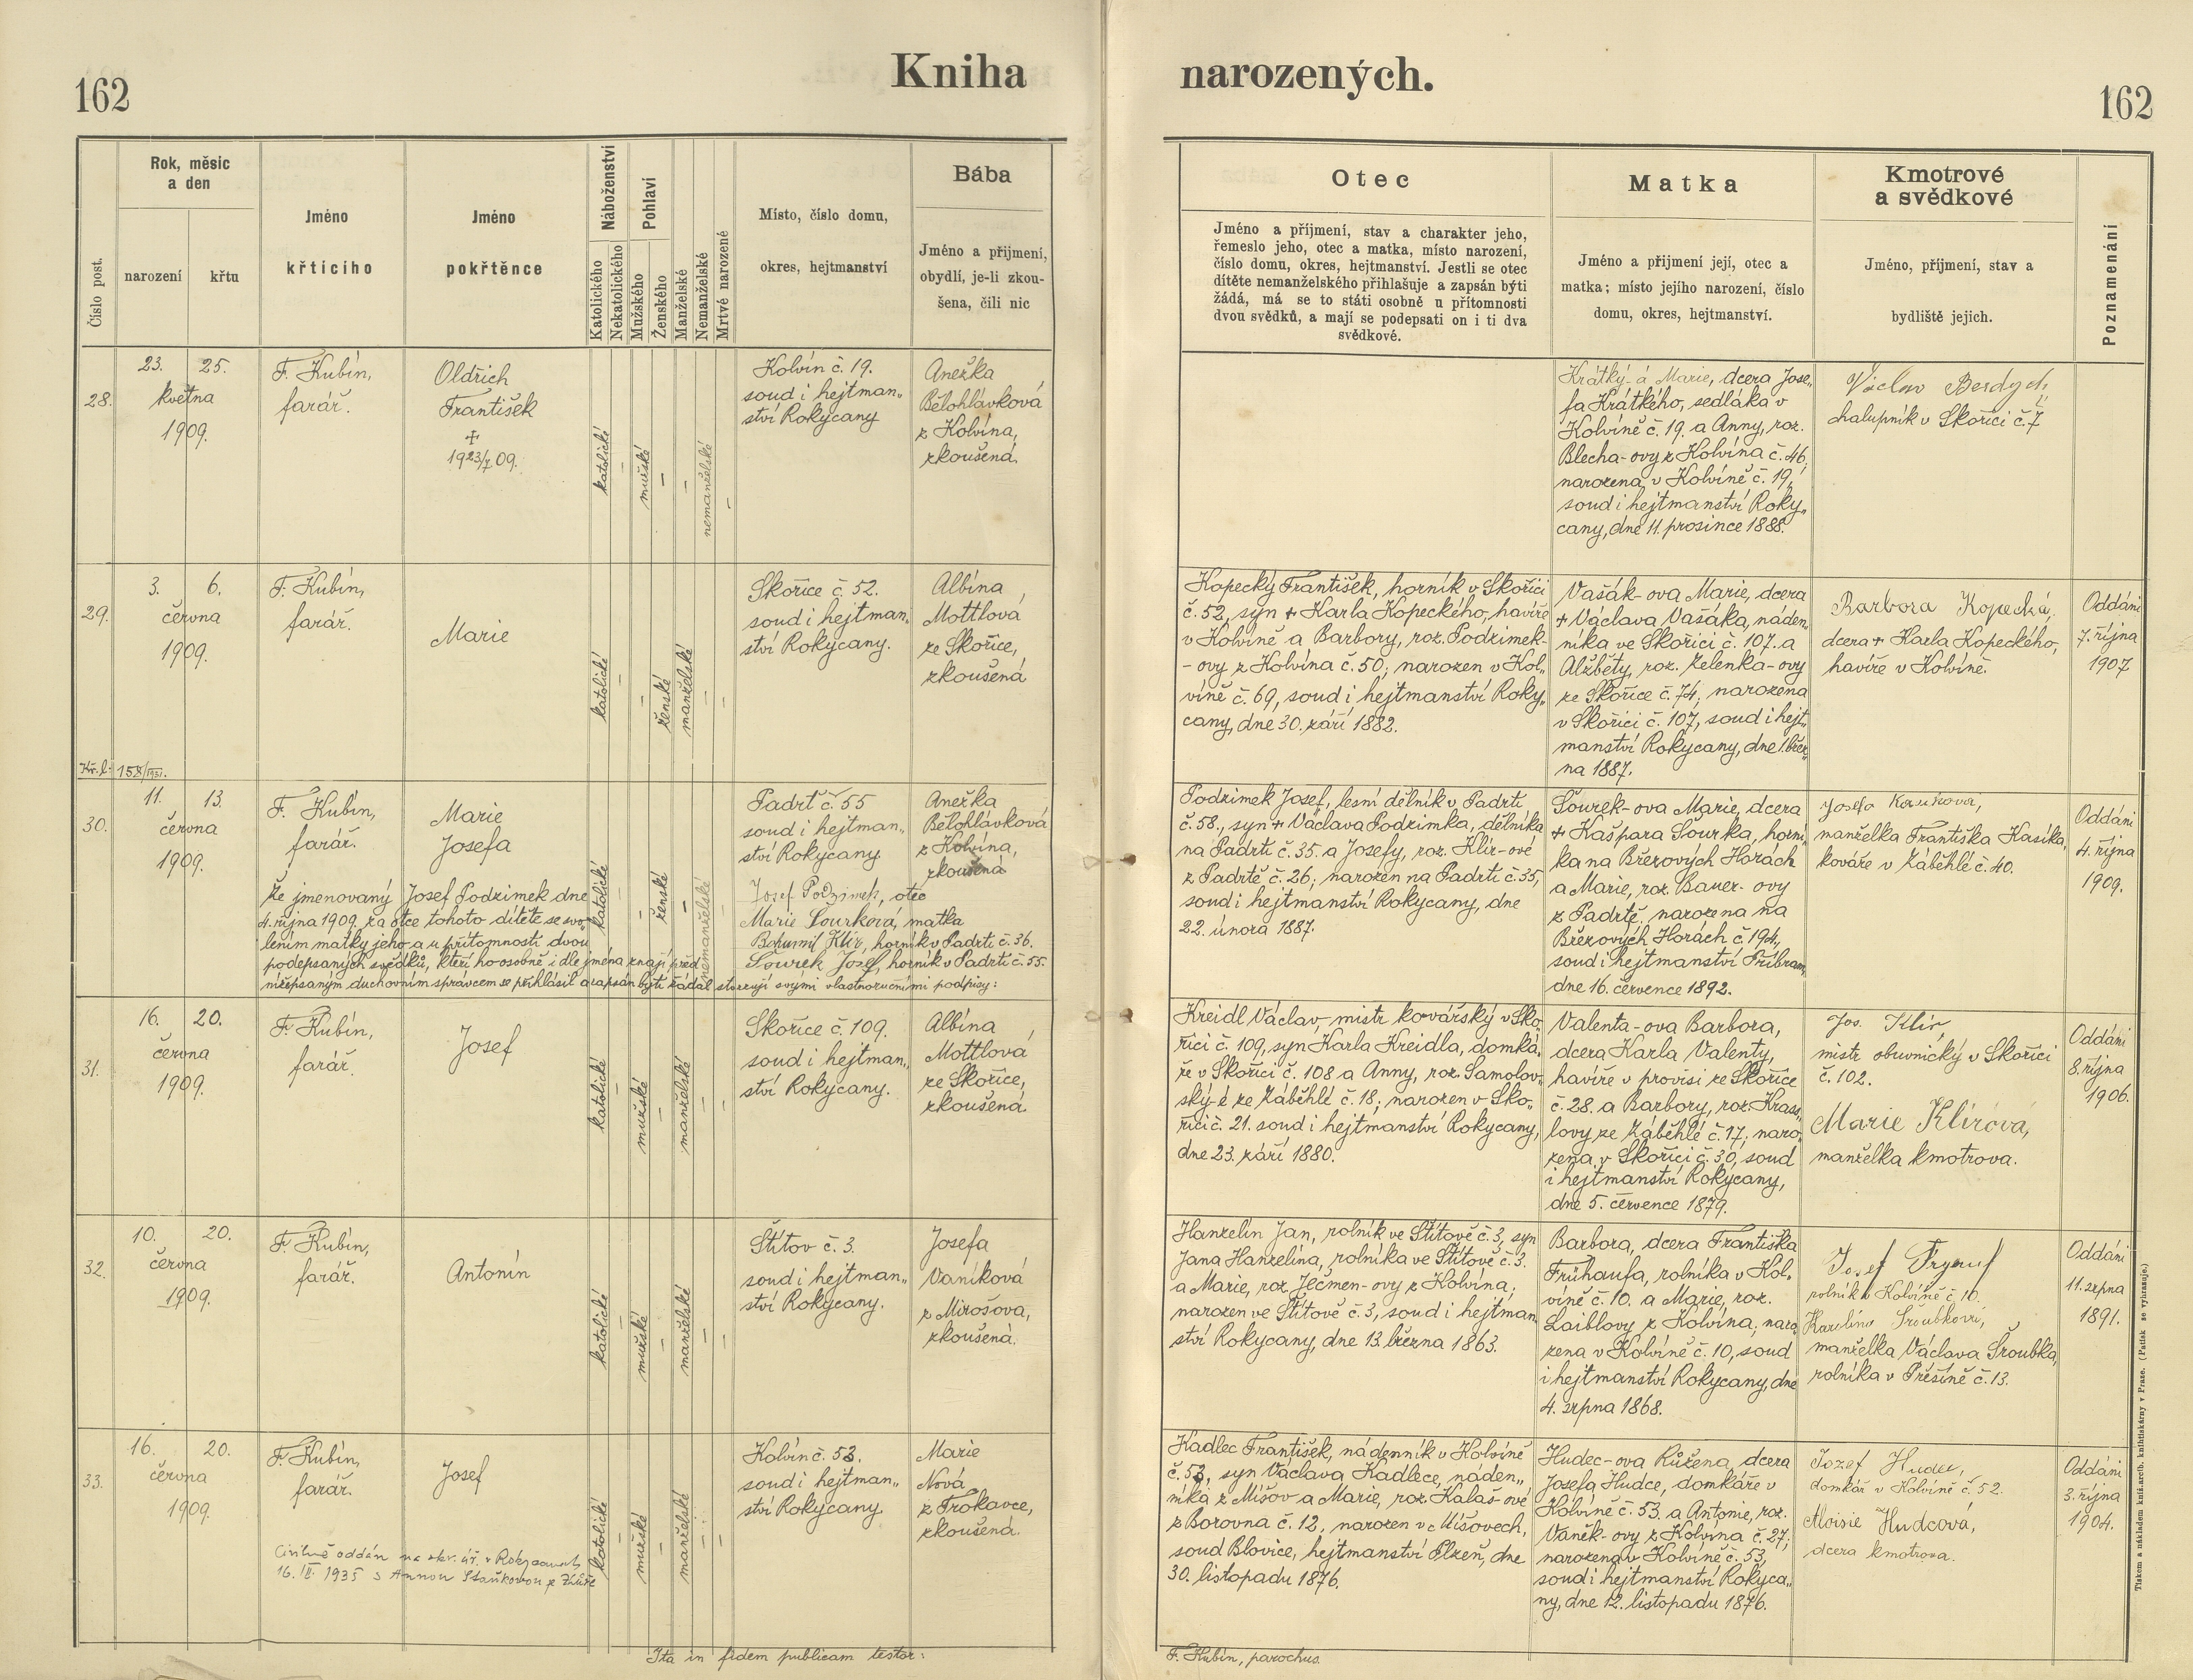 162
Kniha
narozených.
162
Číslo post.
Rok, měsíc
a den
narození
křtu
Jméno
křtícího
Jméno
pokřtěnce
Náboženství
Katolického
Nekatolického
Pohlaví
Mužského
Ženského
Manželské
Nemanželské
Mrtvé narozené
Místo, číslo domu,
okres, hejtmanství
Bába
Jméno a přijmení,
obydlí, je-li zkou-
šena, čili nic
Otec
Jméno a příjmení, stav a charakter jeho,
řemeslo jeho, otec a matka, místo narození,
číslo domu, okres, hejtmanství. Jestli se otec
dítěte nemanželského přihlašuje a zapsán býti
žádá, má se to státi osobně u přítomnosti
dvou svědků, a mají se podepsati on i ti dva
svědkové.
Matka
Jméno a přijmení její, otec a
matka; místo jejího narození, číslo
domu, okres, hejtmanství.
Kmotrové
a svědkové
Jméno, příjmení, stav a
bydliště jejich.
Poznamenání
28.
23. 25.
května
1909.
F. Kubín,
farář.
Oldřich
František
+
19 23/7 09.
katolické
–
mužské
–
–
nemanželské
–
Kolvín č. 19.
soud i hejtman„
ství Rokycany
Anežka
Bělohlávková
z Kolvína,
zkoušená
Krátký-á Marie, dcera Jose„
fa Krátkého, sedláka v
Kolvíně č. 19. a Anny, roz.
Blecha-ovy z Kolvína č. 46,
narozená v Kolvíně č. 19,
soud i hejtmanství Roky„
cany, dne 11. prosince 1888.
Václav Berdych
chalupník v Skořici č. 7
29.
3. 6.
června
1909.
F. Kubín,
farář.
Marie
katolické
–
–
ženské
manželské
–
–
Skořice č. 52.
soud i hejtman„
ství Rokycany.
Albína
Mottlová
ze Skořice,
zkoušená
Kopecký František, horník v Skořici
č. 52, syn + Karla Kopeckého, havíře
v Kolvíně a Barbory, roz. Podzimek-
-ovy z Kolvína č. 50; narozen v Kol„
víně č. 69, soud i hejtmanství Roky„
cany, dne 30. září 1882.
Vašák-ova Marie, dcera
+ Václava Vašáka, náden„
níka ve Skořici č. 107. a
Alžběty, roz. Zelenka-ovy
ze Skořice č. 74; narozena
v Skořici č. 107, soud i hejt„
manství Rokycany, dne 1. břez„
na 1887.
Barbora Kopecká,
dcera + Karla Kopeckého,
havíře v Kolvíně.
Oddáni
7. října
1907
Kř. l:
30.
11. 13.
června
1909.
F. Kubín,
farář.
Marie
Josefa
katolické
–
–
ženské
–
nemanželské
Padrť č. 55
soud i hejtman„
ství Rokycany.
Anežka
Bělohlávková
z Kolvína,
zkoušená
Že jmenovaný Josef Podzimek dne
4. října 1909. za otce tohoto dítěte se svo„
lením matky jeho a u přítomnosti dvou
podepsaných svědků, kteří ho osobně i dle jména znají před
nížepsaným duchovním správcem se přihlásil a zapsán býti žádal stvrzují svými vlastnoručními podpisy:
Josef Podzimek, otec
Marie Šourková, matka
Bohumil Klír, horník v Padrti č. 36.
Šourek Josef, horník v Padrti č. 55.
Podzimek Josef, lesní dělník v Padrti
č. 58., syn + Václava Podzimka, dělníka
na Padrti č. 35. a Josefy, roz. Klír-ové
z Padrtě č. 26; narozen na Padrti č. 35,
soud i hejtmanství Rokycany, dne
22. února 1887.
Šourek-ova Marie, dcera
+ Kašpara Šourka, horní„
ka na Březových Horách
a Marie, roz. Bauer-ovy
z Padrtě, narozena na
Březových Horách č. 194,
soud i hejtmanství Příbram,
dne 16. července 1892.
Josefa Kasíková,
manželka Františka Kasíka,
kováře v Záběhlé č. 40.
Oddáni
4. října
1909.
31.
16. 20.
června
1909.
F. Kubín,
farář.
Josef
katolické
–
mužské
–
manželské
–
–
Skořice č. 109.
soud i hejtman„
ství Rokycany.
Albína
Mottlová
ze Skořice,
zkoušená
Kreidl Václav, mistr kovářský v Sko„
řici č. 109, syn Karla Kreidla, domká„
ře v Skořici č. 108 a Anny, roz. Samolov„
ský-é ze Záběhlé č. 18; narozen v Sko„
řici č. 21. soud i hejtmanství Rokycany,
dne 23. září 1880.
Valenta-ova Barbora,
dcera Karla Valenty,
havíře v provisi ze Skořice
č. 28. a Barbory, roz. Krass„
lovy ze Záběhlé č. 17; naro„
zena v Skořici č. 30, soud
i hejtmanství Rokycany,
dne 5. července 1879.
Jos. Klír,
mistr obuvnický v Skořici
č. 102.
Marie Klírová,
manželka kmotrova.
Oddáni
8. října
1906.
32.
10. 20.
června
1909.
F. Kubín,
farář.
Antonín
katolické
–
mužské
–
manželské
–
–
Štítov č. 3.
soud i hejtman„
ství Rokycany.
Josefa
Vaníková
z Mirošova,
zkoušená.
Hanzelín Jan, rolník ve Štítově č. 3, syn
Jana Hanzelína, rolníka ve Štítově č. 3.
a Marie, roz. Ječmen-ovy z Kolvína;
narozen ve Štítově č. 3, soud i hejtman
ství Rokycany, dne 13. března 1863.
Barbora, dcera Františka
Frühaufa, rolníka v Kol„
víně č. 10. a Marie, roz.
Laiblovy z Kolvína; naro„
zena v Kolvíně č. 10, soud
i hejtmanství Rokycany, dne
4. srpna 1868.
Josef
rolník v Kolvíně č. 10.
Karolína Šroubková,
manželka Václava Šroubka,
rolníka v Příšíně č. 13.
Oddáni
11. srpna
1891.
33.
16. 20.
června
1909.
F. Kubín,
farář.
Josef
Civilně oddán na okr. úř. v Rokycanech
16. III. 1935 s Annou Staňkovou z
katolické
–
mužské
–
manželské
–
–
Kolvín č. 53.
soud i hejtman„
ství Rokycany.
Marie
Nová
z Trokavce,
zkoušená.
Kadlec František, nádenník v Kolvíně
č. 53, syn Václava Kadlece, náden„
níka z Míšov a Marie, roz. Kalaš-ové
z Borovna č. 12, narozen v Míšovech,
soud Blovice, hejtmanství Plzeň, dne
30. listopadu 1876.
Hudec-ova Růžena, dcera
Josefa Hudce, domkáře v
Kolvíně č. 53. a Antonie, roz.
Vaněk-ovy z Kolvína č. 27;
narozena v Kolvíně č. 53,
soud i hejtmanství Rokyca„
ny, dne 12. listopadu 1876.
Jozef Hudec,
domkář v Kolvíně č. 52.
Aloisie Hudcová,
dcera kmotrova.
Oddáni
3. října
1904.
Ita in fidem publicam testor:
F. Kubín, parochus.
Tiskem a nákladem kníž. arcib. knihtiskárny v Praze. (Patisk se vyhrazuje.)